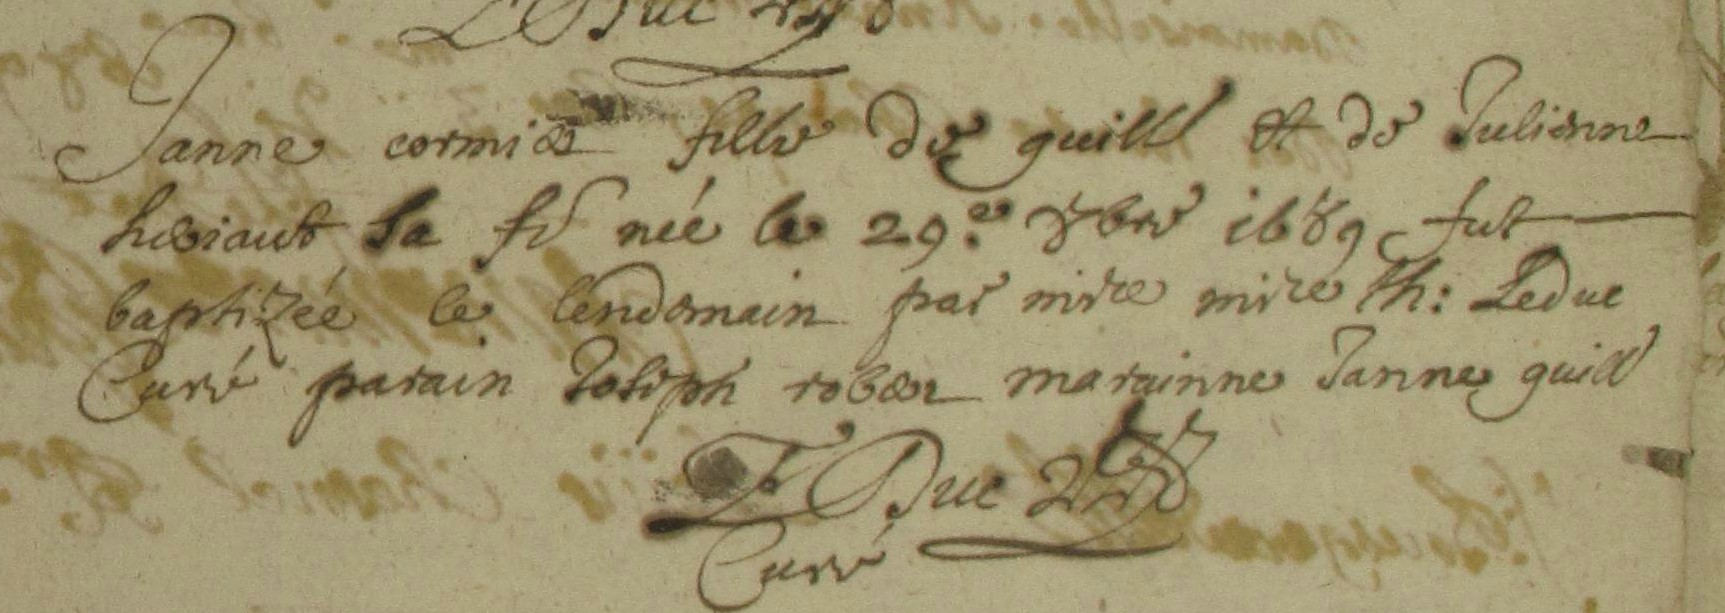 Le Duc
Janne cormier fille de guill et de Julienne
heriaut sa fe née le 29.e 8bre 1689 fut
baptizée le lendemain par mire mire th: Leduc
Curé parain Joseph rober marainne Janne guill
Le Duc
Curé